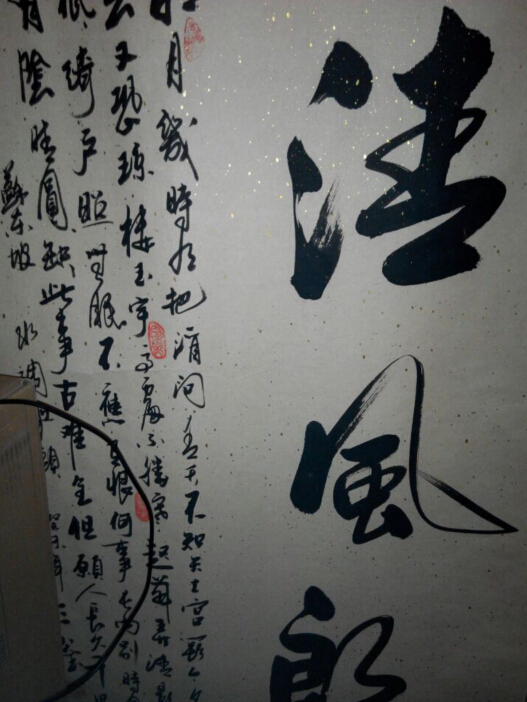 清風朗
月幾時有把酒問青天不知天上宮闕今夕
去又恐瓊樓玉宇高處不勝寒起舞弄清影
低綺户照無眠不應有恨何事長向别時
有陰晴圓缺此事古難全但願人長久千里
蘇東坡 水調歌頭